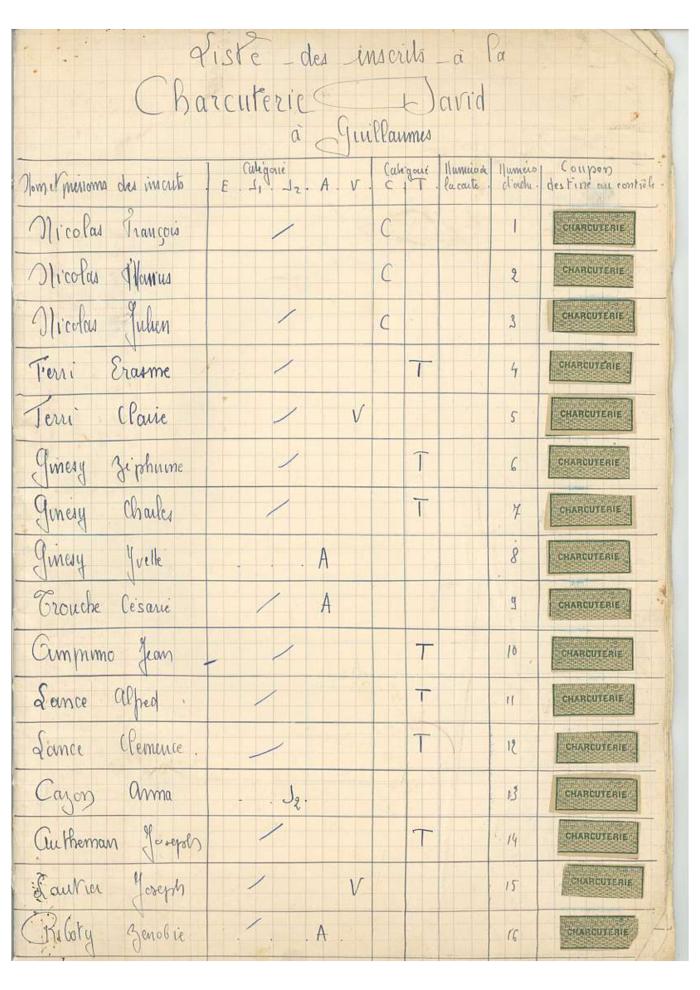 Liste des inscrits à la
Charcuterie David
à Guillaumes
Nom et prénoms des inscrits Catégorie E. J1. J2. A. V. Catégorie C T Numéro de la carte Numéro d'ordre Coupon destiné au contrôle
Nicolas François / C 1 CHARCUTERIE
Nicolas Marius C 2 CHARCUTERIE
Nicolas Julien / C 3 CHARCUTERIE
Ferri Erasme / T 4 CHARCUTERIE
Ferri Claire / V 5 CHARCUTERIE
Ginésy / T 6 CHARCUTERIE
Ginésy Charles / T 7 CHARCUTERIE
Ginésy Yvette A 8 CHARCUTERIE
Trouche Césarie / A 9 CHARCUTERIE
Jean / T 10 CHARCUTERIE
Lance Alfred / T 11 CHARCUTERIE
Lance Clémence / T 12 CHARCUTERIE
Cazon Anna J2. 13 CHARCUTERIE
Autheman Joseph / T 14 CHARCUTERIE
Lautier Joseph / V 15 CHARCUTERIE
Riboty Zénobie / A 16 CHARCUTERIE